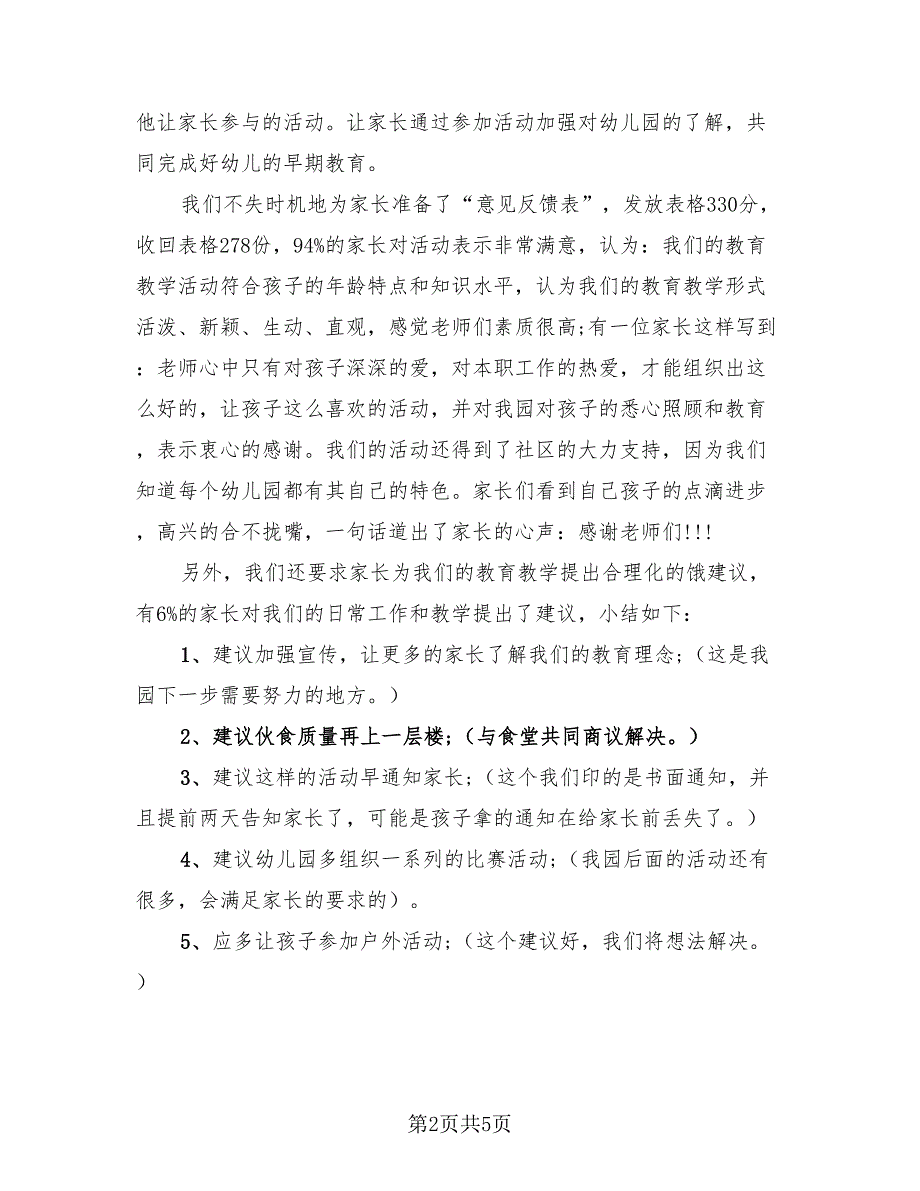 他让家长参与的活动。让家长通过参加活动加强对幼儿园的了解，共
同完成好幼儿的早期教育。
我们不失时机地为家长准备了“意见反馈表”，发放表格330分，
收回表格278份，94%的家长对活动表示非常满意，认为：我们的教育
教学活动符合孩子的年龄特点和知识水平，认为我们的教育教学形式
活泼、新颖、生动、直观，感觉老师们素质很高;有一位家长这样写到
：老师心中只有对孩子深深的爱，对本职工作的热爱，才能组织出这
么好的，让孩子这么喜欢的活动，并对我园对孩子的悉心照顾和教育
，表示衷心的感谢。我们的活动还得到了社区的大力支持，因为我们
知道每个幼儿园都有其自己的特色。家长们看到自己孩子的点滴进步
，高兴的合不拢嘴，一句话道出了家长的心声：感谢老师们!!!
另外，我们还要求家长为我们的教育教学提出合理化的饿建议，
有6%的家长对我们的日常工作和教学提出了建议，小结如下：
1、建议加强宣传，让更多的家长了解我们的教育理念;（这是我
园下一步需要努力的地方。）
2、建议伙食质量再上一层楼;（与食堂共同商议解决。）
3、建议这样的活动早通知家长;（这个我们印的是书面通知，并
且提前两天告知家长了，可能是孩子拿的通知在给家长前丢失了。）
4、建议幼儿园多组织一系列的比赛活动;（我园后面的活动还有
很多，会满足家长的要求的）。
5、应多让孩子参加户外活动;（这个建议好，我们将想法解决。
）
第2页共5页